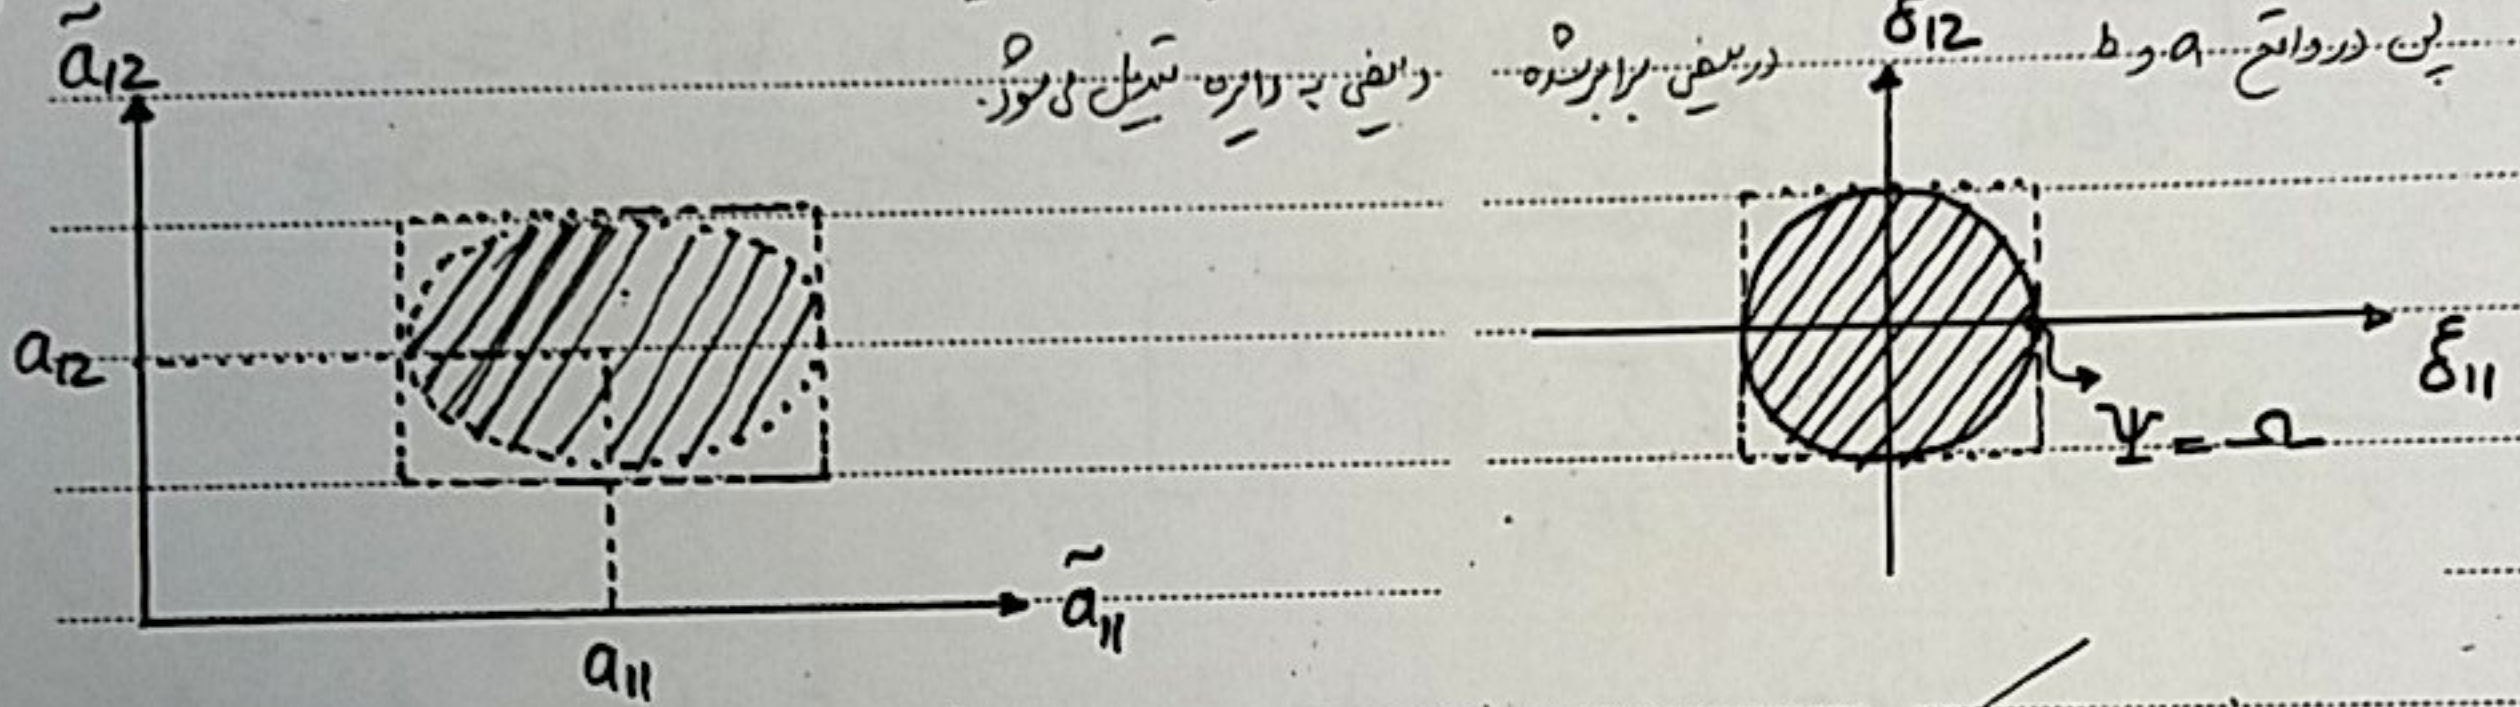 پس در واقع a و b در بیضی برابر شده و بیضی به دایره تبدیل می‌شود.
ã12
a12
a11
ã11
ξ12
ξ11
Ψ = Ω